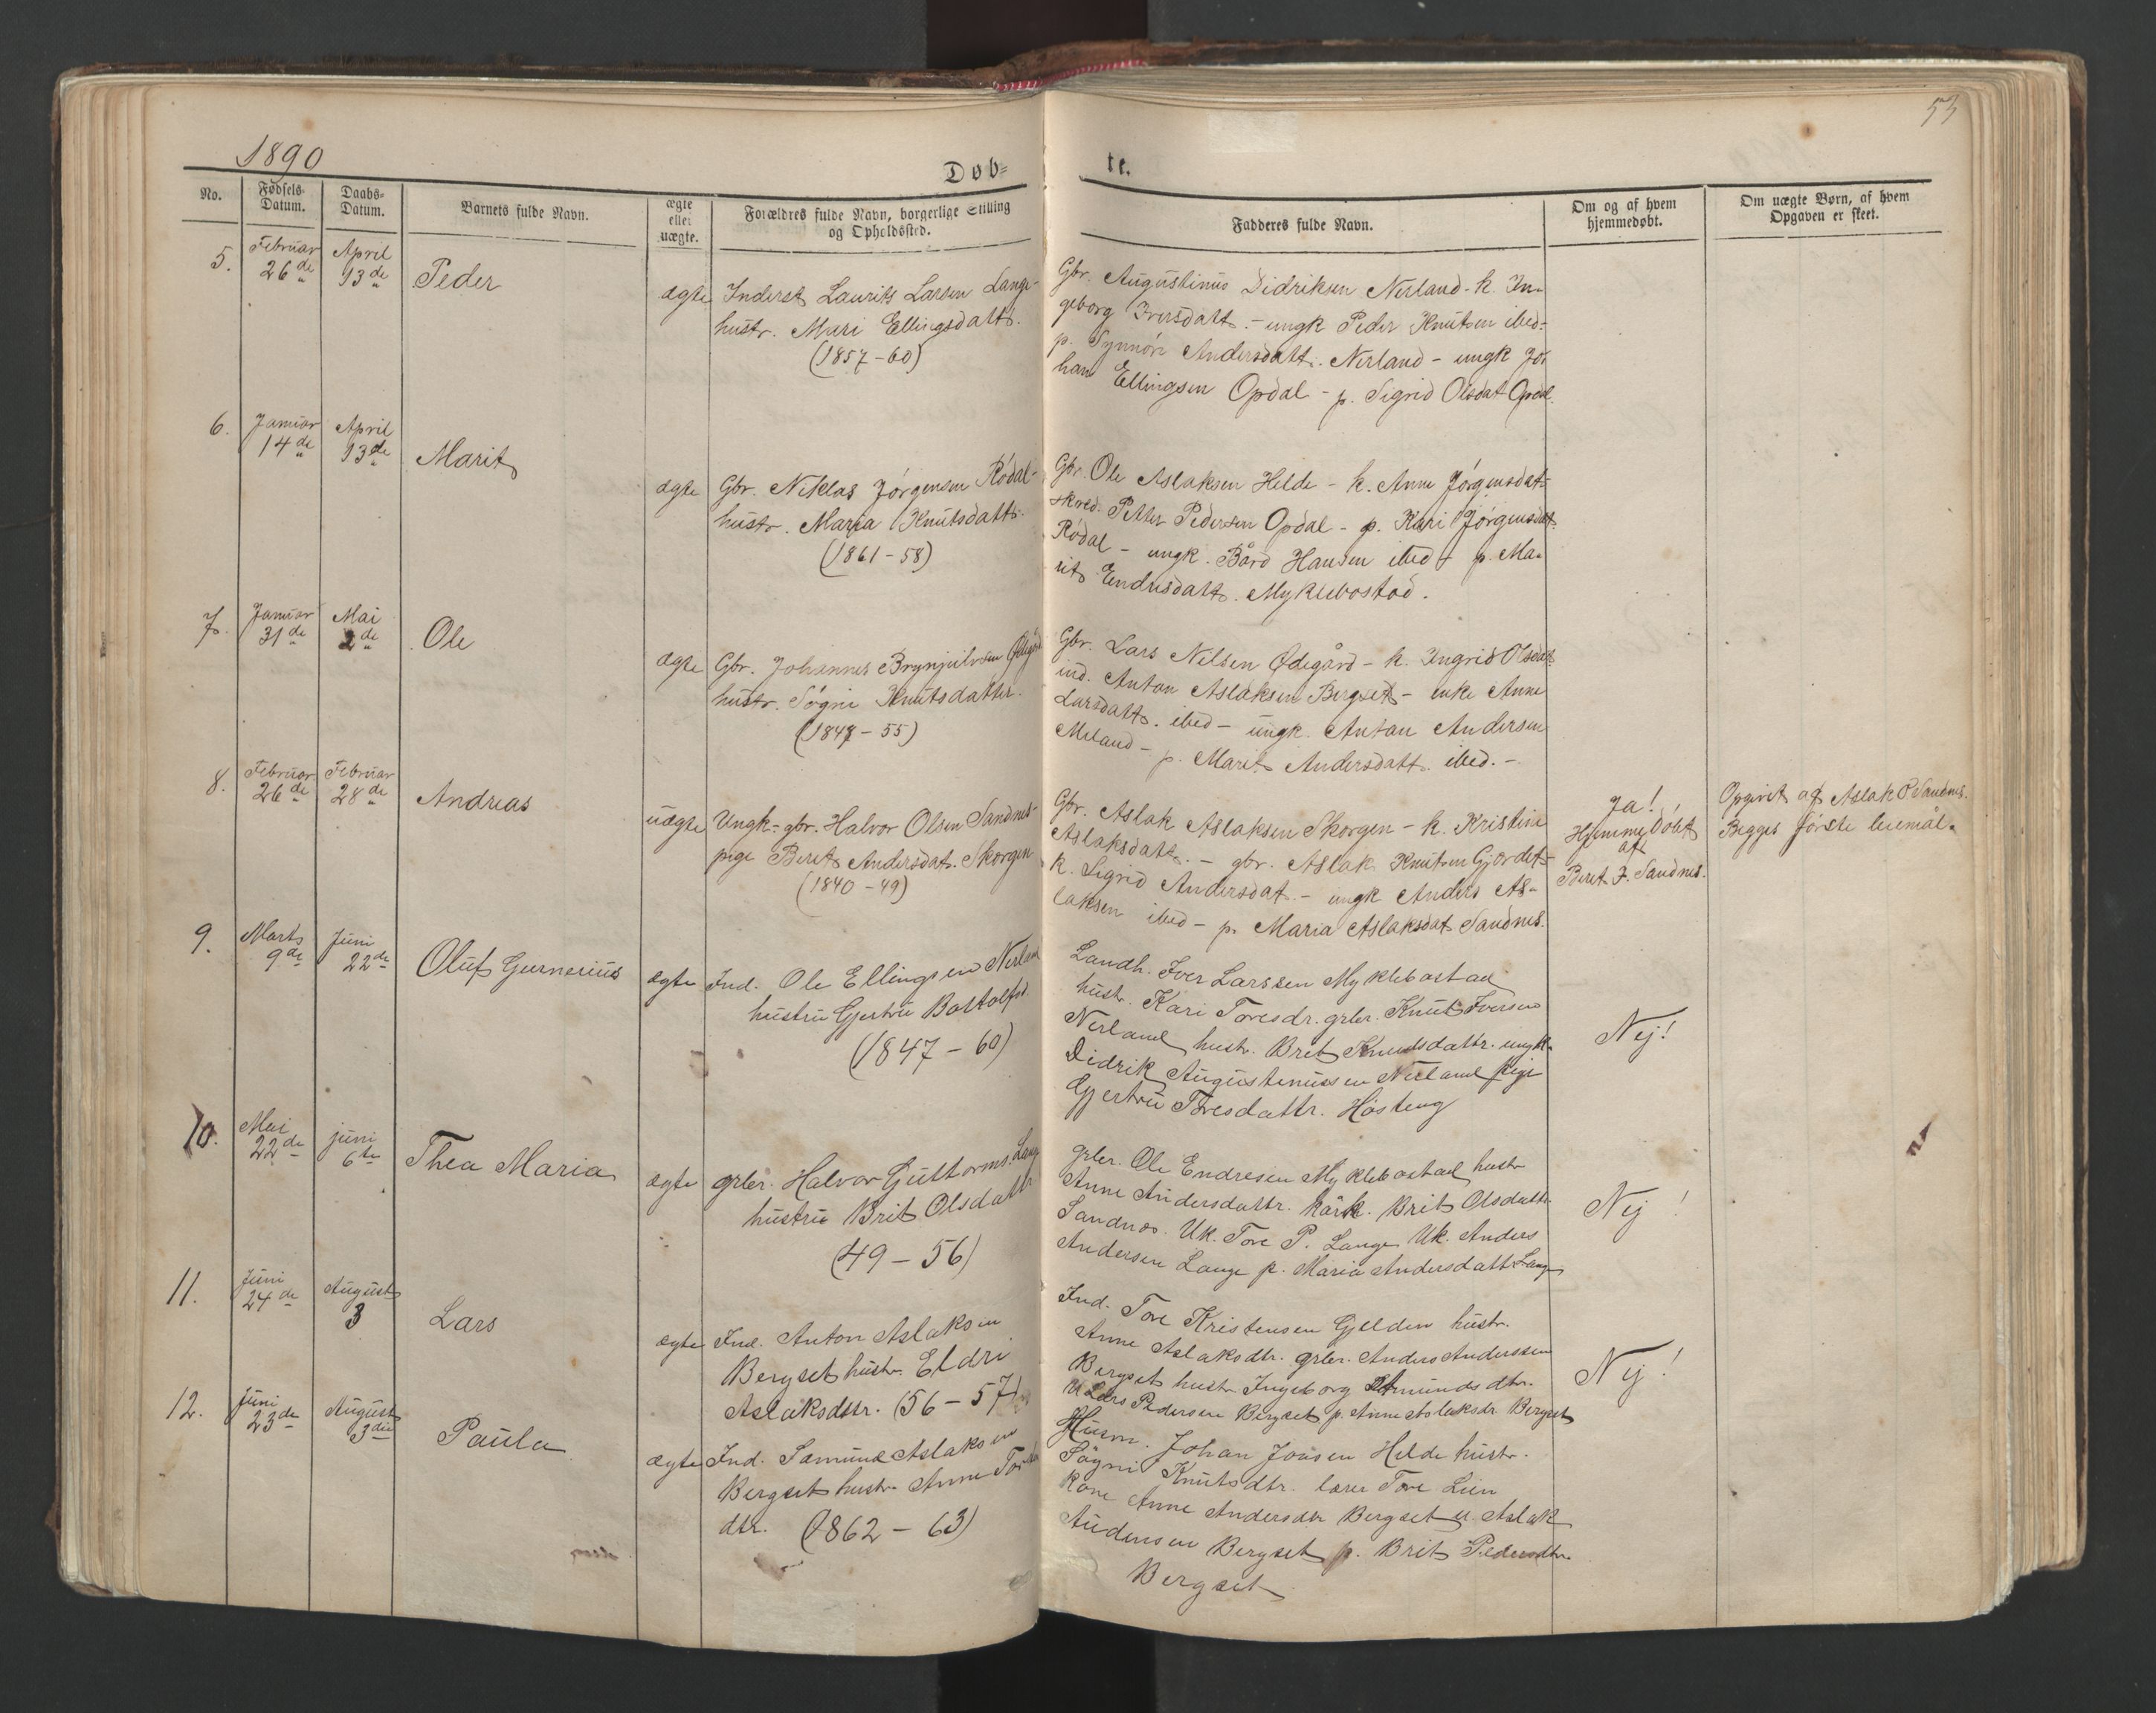 1890
53
Døb=
te.
No.
Fødsels-
Datum.
Daabs-
Datum.
Barnets fulde Navn.
ægte
eller
uægte.
Forældres fulde Navn, borgerlige Stilling
og Opholdssted.
Fadderes fulde Navn.
Om og af hvem
hjemmedøbt.
Om uægte Børn, af hvem
Opgaven er skeet.
5.
Februar
26de
April
13de
Peder
ægte
Inderst Laurits Larsen Lange-
hustr. Mari Ellingsdattr.
(1857-60)
Gbr. Augustinus Didriksen Nerland - k. In-
geborg Iversdatt. - ungk Peder Knutsen ibed-
p. Synnöve Andersdatt. Nerland - ungk Jo-
han Ellingsen Opdal - p. Sigrid Olsdat Opdal.
6.
Januar
14de
April
13de
Marit
ægte
Gbr. Niklas Jörgensen Rödal-
hustr. Maria Knutsdattr.
(1861-58)
Gbr. Ole Aslaksen Helde - k. Anne Jörgensdat-
skred. Petter Pedersen Opdal - p. Kari Jörgensdat.
Rödal - ungk. Bård Hansen ibed - p. Ma-
rit Endresdatt. Myklebostad.
7.
Januar
31de
Mai
2de
Ole
ægte
Gbr. Johannes Brynjulvsen Ødegård
hustr. Sögni Knutsdatter.
(1847-55)
Gbr. Lars Nelsen Ødegård - k. Ingrid Olsdat.
ind. Anton Aslaksen Bergset - enke Anne
Larsdatt. ibed - ungk. Anton Andersen
Meland - p. Marit Andersdatt. ibed. -
8.
Februar
26de
Februar
28de
Andreas
uægte
Ungk- gbr. Halvor Olsen Sandnes-
pige Beret Andersdat. Skorgen
(1840-49)
Gbr. Aslak Aslaksen Skorgen - k. Kristine
Aslaksdatt. - gbr. Aslak Knutsen Gjördet-
k. Sigrid Andersdat. - ungk Anders As-
laksen ibed - p. Maria Aslaksdat Sandnes.
Ja!
Hjemmedöbt
af
Beret J. Sandnes.
Opgivet af Aslak O Sandnes.
Begges förste leiemål.
9.
Marts
9de
Juni
22de
Oluf Gunnerius
ægte
Ind. Ole Ellingsen Nerland
hustru Gjertru Bottolfsd.
(1847-60)
Landh. Iver Larssen Myklebostad
hustr. Kari Toresdr. grbr. Knut Iversen
Nerland hustr. Brit Knudsdattr. ungk.
Didrik Augustinussen Nerland pige
Gjertru Toresdattr. Hösteng
Nej!
10.
Mai
22de
juni
6te
Thea Maria
ægte
grbr. Halvor Guttorms. Lange
hustru Brit Olsdattr
(49-56)
grbr. Ole Endresen Myklebostad hustr
Anne Andersdattr. kårk. Brit Olsdattr.
Sandnes. Uk. Tore P. Lange Uk. Anders
Andersen Lange p. Maria Andersdattr Lange
Nej!
11.
Juni
24de
August
3
Lars
ægte
Ind. Anton Aslaksen
Bergset hustr. Eldri
Aslaksdttr. (56-57)
Ind. Tore Kristensen Gjelden hustr.
Anne Aslaksdtr. grbr. Anders Anderssen
Bergset hustr Ingeborg Amundsdtr.
U Lars Pedersen Bergset p. Anne Aslaksdr. Bergset
Nej!
12.
Juni
23de
August
3die
Paula
ægte
Ind. Samund Aslaksen
Bergset hustr. Anne Tores
dtr. (1862-63)
Husm. Johan Jonsen Helde hustr.
Sögni Knutsdtr. lærer Tore Lien
kone Anne Andersdtr Bergset u. Aslak
Andersen Bergset p. Brit Pedersdtr.
Bergset